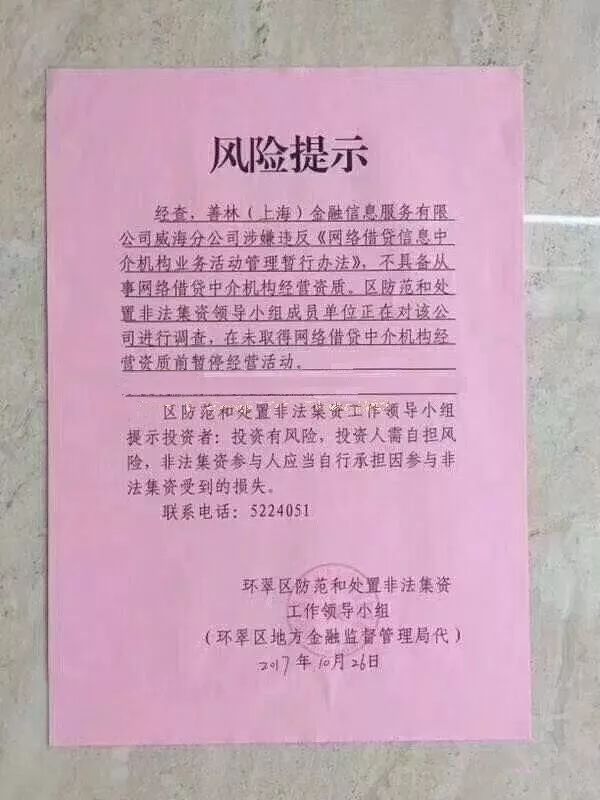 风险提示
经查，善林（上海）金融信息服务有限
公司威海分公司涉嫌违反《网络借贷信息中
介机构业务活动管理暂行办法》，不具备从
事网络借贷中介机构经营资质。区防范和处
置非法集资领导小组成员单位正在对该公
司进行调查，在未取得网络借贷中介机构经
营资质前暂停经营活动。
区防范和处置非法集资工作领导小组
提示投资者：投资有风险，投资人需自担风
险，非法集资参与人应当自行承担因参与非
法集资受到的损失。
联系电话：5224051
环翠区防范和处置非法集资
工作领导小组
（环翠区地方金融监督管理局代）
2017年10月26日